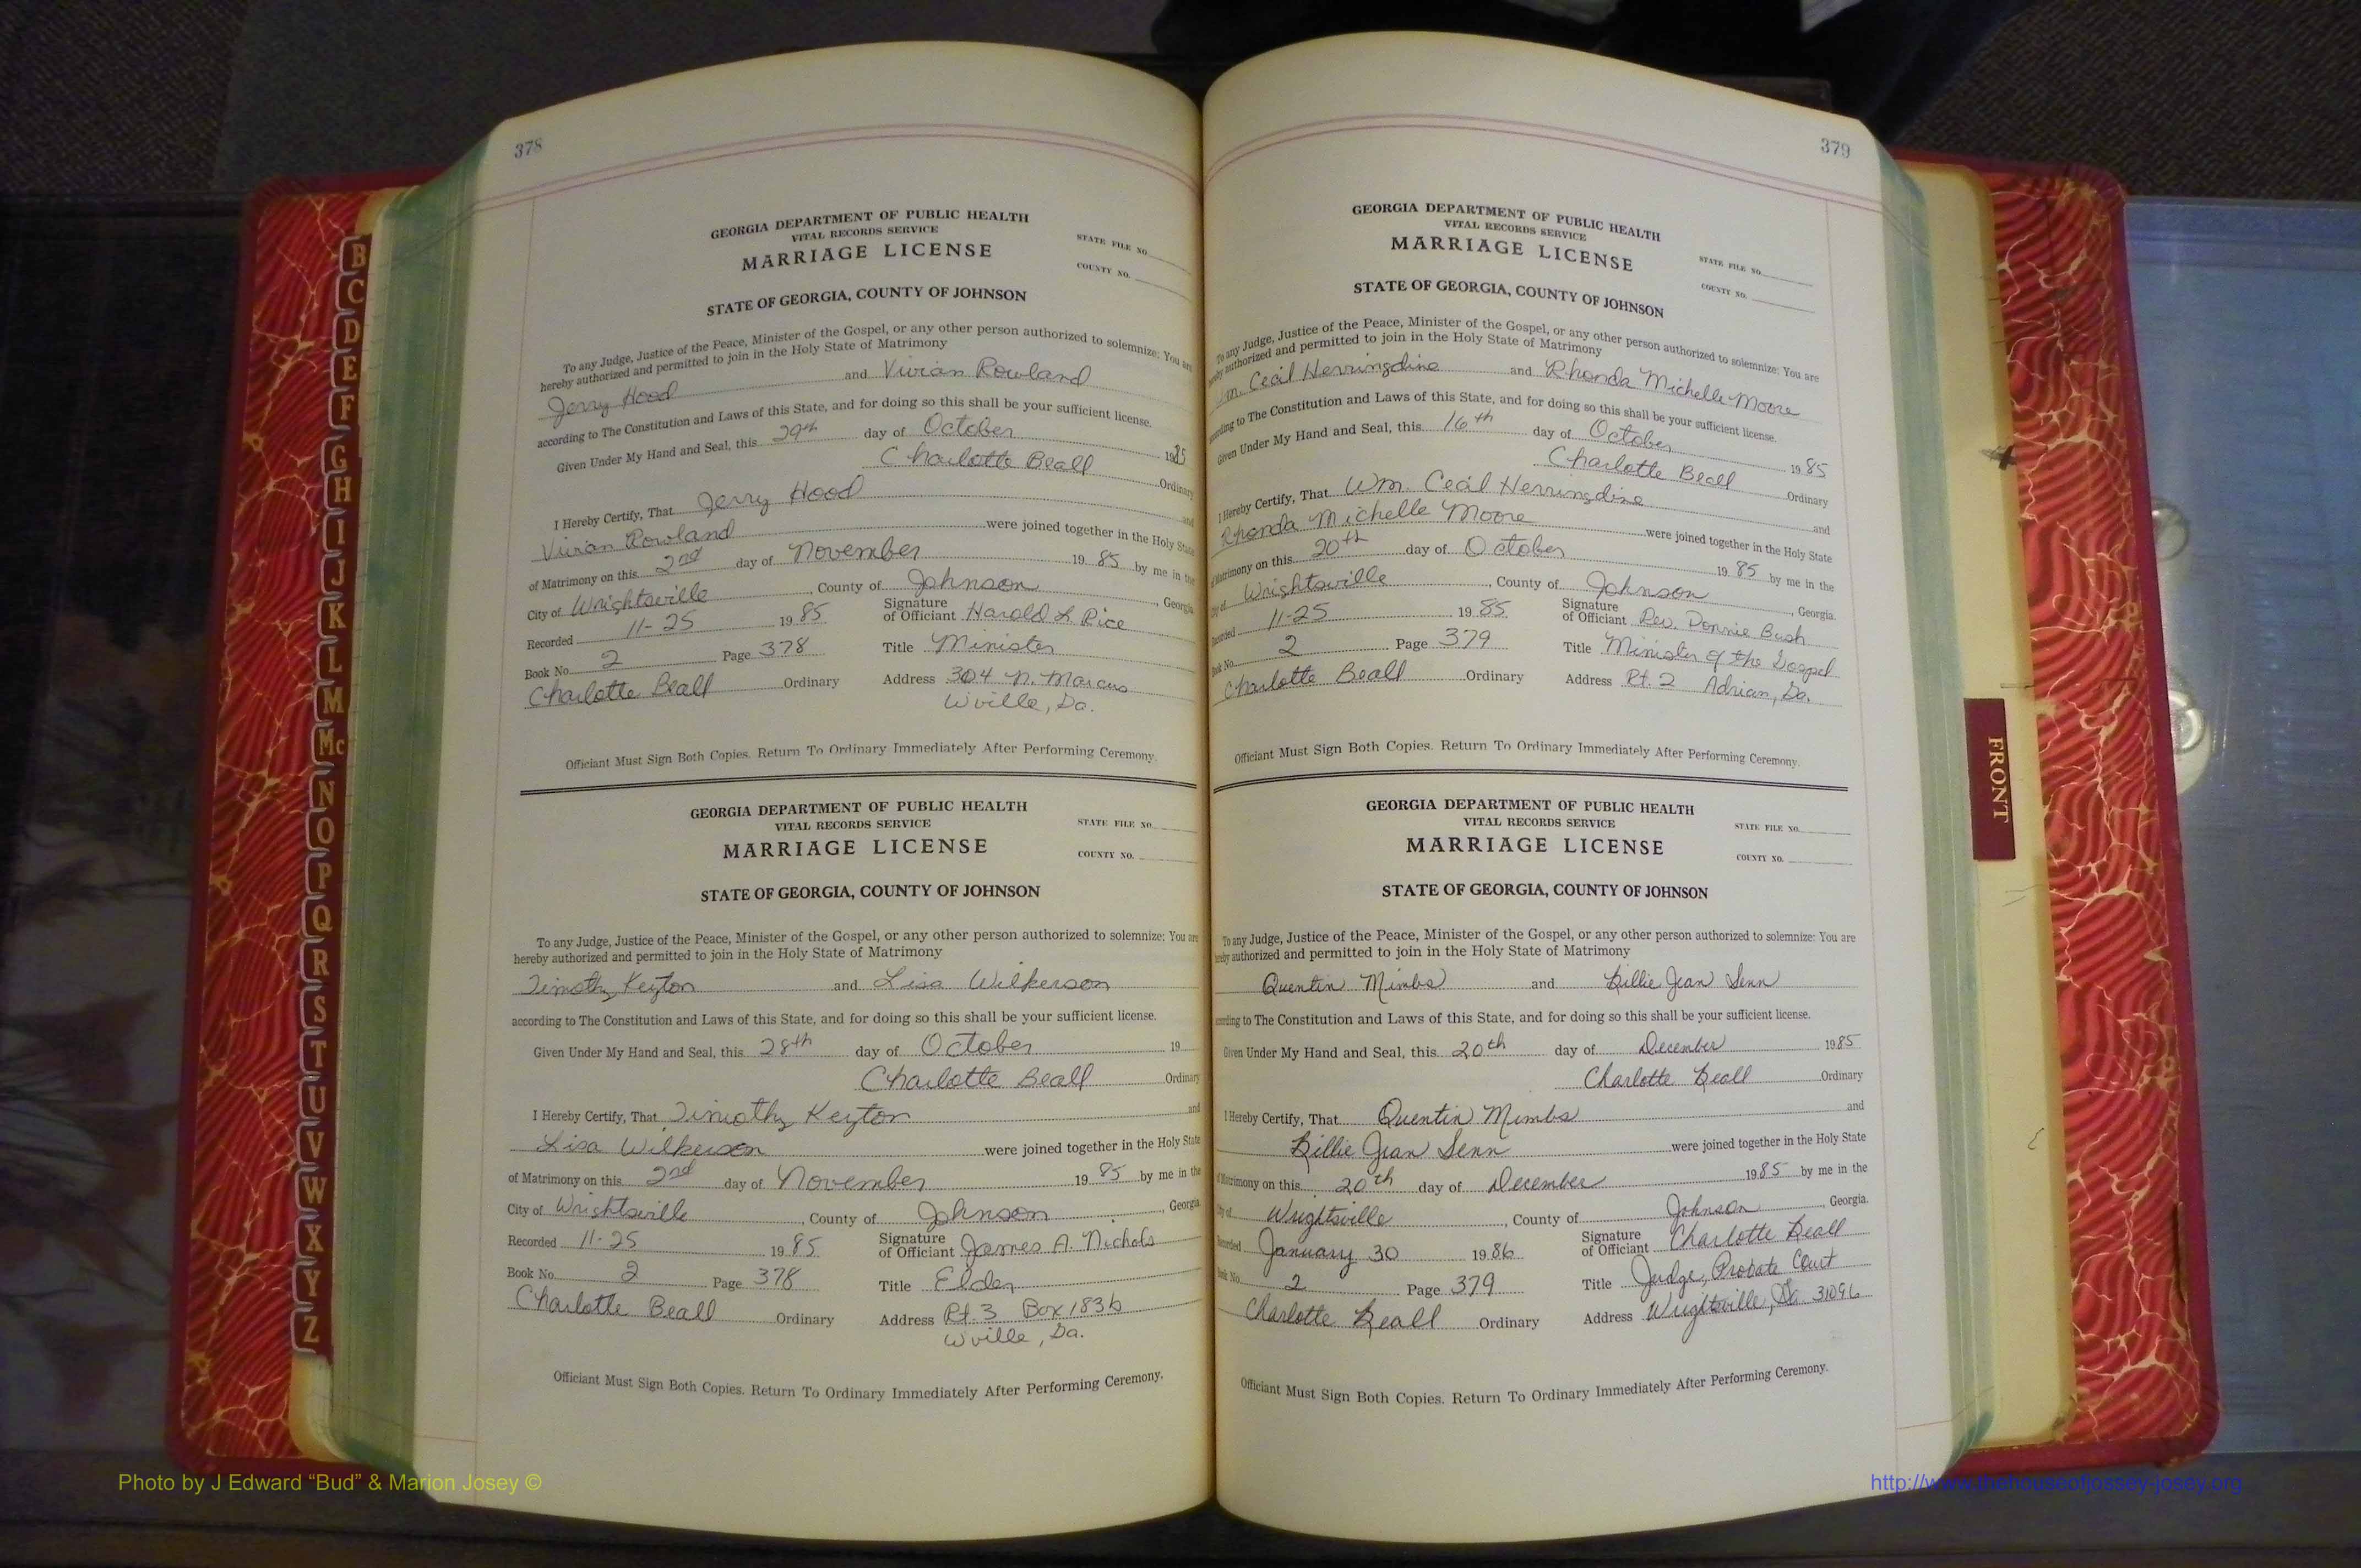 378
GEORGIA DEPARTMENT OF PUBLIC HEALTH
VITAL RECORDS SERVICE
MARRIAGE LICENSE
STATE FILE NO.
COUNTY NO.
STATE OF GEORGIA, COUNTY OF JOHNSON
To any Judge, Justice of the Peace, Minister of the Gospel, or any other person authorized to solemnize: You are
hereby authorized and permitted to join in the Holy State of Matrimony
Jerry Hood and Vivian Rowland
according to The Constitution and Laws of this State, and for doing so this shall be your sufficient license.
Given Under My Hand and Seal, this 29th day of October 1985
Charlotte Beall Ordinary
I Hereby Certify, That Jerry Hood and
Vivian Rowland were joined together in the Holy State
of Matrimony on this 2nd day of November 1985 by me in the
City of Wrightsville, County of Johnson, Georgia
Recorded 11-25 1985 Signature of Officiant Harold L Rice
Book No. 2 Page 378 Title Minister
Charlotte Beall Ordinary Address 304 N. Marcus
W'ville, Ga.
Officiant Must Sign Both Copies. Return To Ordinary Immediately After Performing Ceremony.
GEORGIA DEPARTMENT OF PUBLIC HEALTH
VITAL RECORDS SERVICE
MARRIAGE LICENSE
STATE FILE NO.
COUNTY NO.
STATE OF GEORGIA, COUNTY OF JOHNSON
To any Judge, Justice of the Peace, Minister of the Gospel, or any other person authorized to solemnize: You are
hereby authorized and permitted to join in the Holy State of Matrimony
Timothy Keyton and Lisa Wilkerson
according to The Constitution and Laws of this State, and for doing so this shall be your sufficient license.
Given Under My Hand and Seal, this 28th day of October 19
Charlotte Beall Ordinary
I Hereby Certify, That Timothy Keyton and
Lisa Wilkerson were joined together in the Holy State
of Matrimony on this 2nd day of November 1985 by me in the
City of Wrightsville, County of Johnson, Georgia
Recorded 11-25 1985 Signature of Officiant James A. Nichols
Book No. 2 Page 378 Title Elder
Charlotte Beall Ordinary Address Rt. 3 Box 183b
W'ville, Ga.
Officiant Must Sign Both Copies. Return To Ordinary Immediately After Performing Ceremony.
379
GEORGIA DEPARTMENT OF PUBLIC HEALTH
VITAL RECORDS SERVICE
MARRIAGE LICENSE
STATE FILE NO.
COUNTY NO.
STATE OF GEORGIA, COUNTY OF JOHNSON
To any Judge, Justice of the Peace, Minister of the Gospel, or any other person authorized to solemnize: You are
hereby authorized and permitted to join in the Holy State of Matrimony
Wm. Cecil Herringdine and Rhonda Michelle Moore
according to The Constitution and Laws of this State, and for doing so this shall be your sufficient license.
Given Under My Hand and Seal, this 16th day of October 1985
Charlotte Beall Ordinary
I Hereby Certify, That Wm. Cecil Herringdine and
Rhonda Michelle Moore were joined together in the Holy State
of Matrimony on this 20th day of October 1985 by me in the
City of Wrightsville, County of Johnson, Georgia.
Recorded 11-25 1985 Signature of Officiant Rev. Donnie Bush
Book No. 2 Page 379 Title Minister of the Gospel
Charlotte Beall Ordinary Address Rt. 2 Adrian, Ga.
Officiant Must Sign Both Copies. Return To Ordinary Immediately After Performing Ceremony.
GEORGIA DEPARTMENT OF PUBLIC HEALTH
VITAL RECORDS SERVICE
MARRIAGE LICENSE
STATE FILE NO.
COUNTY NO.
STATE OF GEORGIA, COUNTY OF JOHNSON
To any Judge, Justice of the Peace, Minister of the Gospel, or any other person authorized to solemnize: You are
hereby authorized and permitted to join in the Holy State of Matrimony
Quentin Mimbs and Billie Jean Senn
according to The Constitution and Laws of this State, and for doing so this shall be your sufficient license.
Given Under My Hand and Seal, this 20th day of December 1985
Charlotte Beall Ordinary
I Hereby Certify, That Quentin Mimbs and
Billie Jean Senn were joined together in the Holy State
of Matrimony on this 20th day of December 1985 by me in the
City of Wrightsville, County of Johnson, Georgia.
Recorded January 30 1986 Signature of Officiant Charlotte Beall
Book No. 2 Page 379 Title Judge, Probate Court
Charlotte Beall Ordinary Address Wrightsville, Ga 31096
Officiant Must Sign Both Copies. Return To Ordinary Immediately After Performing Ceremony.
B
C
D
E
F
G
H
I
J
K
L
M
Mc
N
O
P
Q
R
S
T
U
V
W
X
Y
Z
FRONT
Photo by J Edward “Bud” & Marion Josey ©
http://www.thehouseofjossey-josey.org